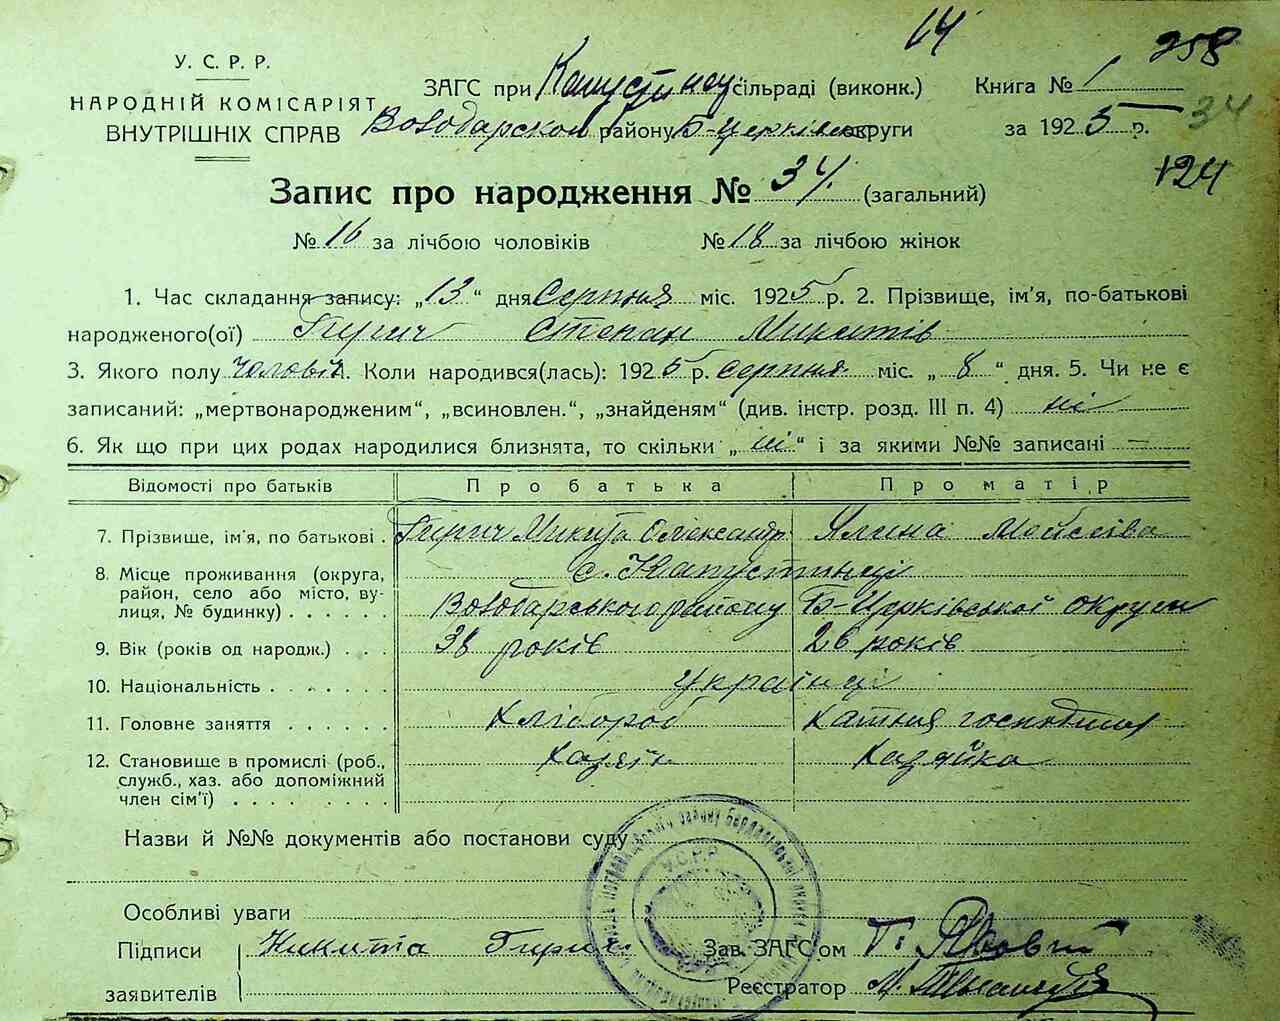 14
258
У. С. Р. Р.
НАРОДНІЙ КОМІСАРІЯТ
ВНУТРІШНІХ СПРАВ
ЗАГС при сільраді (виконк.) Книга № 1
району Б-Церківськ округи за 1925 р. 34
124
Запис про народження № 34. (загальний)
№ 16 за лічбою чоловіків № 18 за лічбою жінок
1. Час складання запису: „13" дня Серпня міс. 1925 р. 2. Прізвище, ім'я, по-батькові
народженого(ої) Гирич Степан Микитів
3. Якого полу чоловіч 4. Коли народився(лась): 1925 р. серпня міс. „8" дня. 5. Чи не є
записаний: „мертвонародженим", „всиновлен.", „знайденям" (див. інстр. розд. III п. 4) ні
6. Як що при цих родах народилися близнята, то скільки „ні" і за якими №№ записані —
Відомості про батьків Про батька Про матір
7. Прізвище, ім'я, по батькові . Гирич Микита Олександр. Ялина Мойсеїва
8. Місце проживання (округа, с. Капустинці
район, село або місто, ву-
лиця, № будинку) . . . . . . Володарського району Б-Церківської округи
9. Вік (років од народж.) . . . 38 років 26 років
10. Національність . . . . . . . українці
11. Головне заняття . . . . . . Хлібороб Хатня господиня
12. Становище в промислі (роб., Хазяїн Хазяйка
служб., хаз. або допоміжний
член сім'ї) . . . . . . . . .
Назви й №№ документів або постанови суду
У.С.Р.Р.
Особливі уваги
Підписи Никита Гирич Зав. ЗАГС'ом Г.
заявителів Реєстратор М.